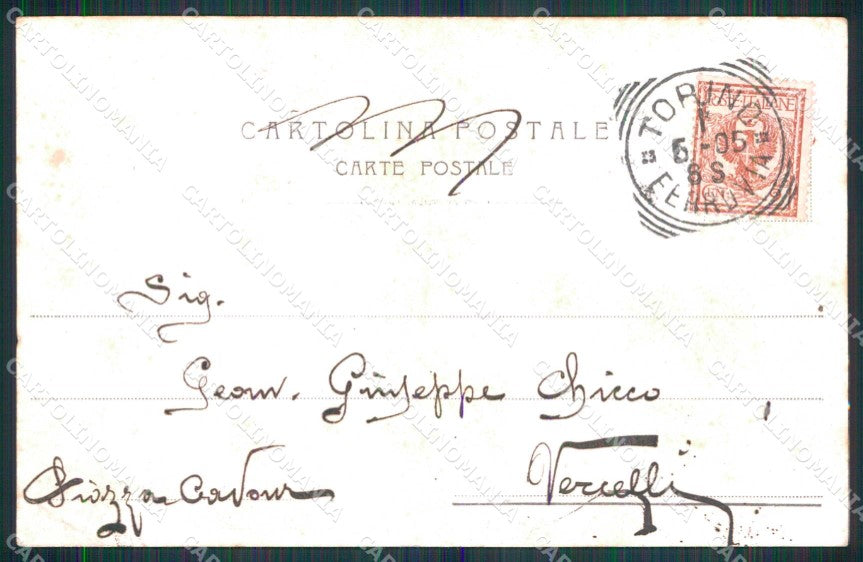 CARTOLINA POSTALE
CARTE POSTALE
TORINO
1
5-05
8 S
FERROVIA
Sig.
Geom. Giuseppe Chicco
Vercelli
Piazza Cavour
CARTOLINOMANIA